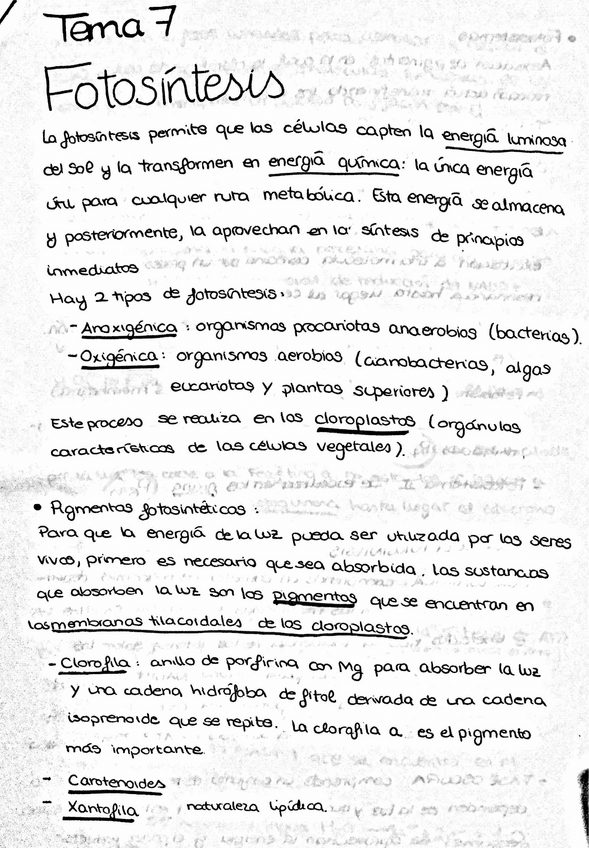 Tema 7
Fotosíntesis
La fotosíntesis permite que las células capten la energía luminosa
del Sol y la transformen en energía química: la única energía
útil para cualquier ruta metabólica. Esta energía se almacena
y posteriormente, la aprovechan en la síntesis de principios
inmediatos
Hay 2 tipos de fotosíntesis:
- Anoxigénica: organismos procariotas anaerobios (bacterias).
- Oxigénica: organismos aerobios (cianobacterias, algas
eucariotas y plantas superiores)
Este proceso se realiza en los cloroplastos (orgánulos
característicos de las células vegetales).
• Pigmentos fotosintéticos:
Para que la energía de la luz pueda ser utilizada por los seres
vivos, primero es necesario que sea absorbida. Las sustancias
que absorben la luz son los pigmentos que se encuentran en
las membranas tilacoidales de los cloroplastos.
- Clorofila: anillo de porfirina con Mg para absorber la luz
y una cadena hidrófoba de fitol derivada de una cadena
isoprenoide que se repite. La clorofila a es el pigmento
más importante
- Carotenoides
- Xantofila naturaleza lipídica.